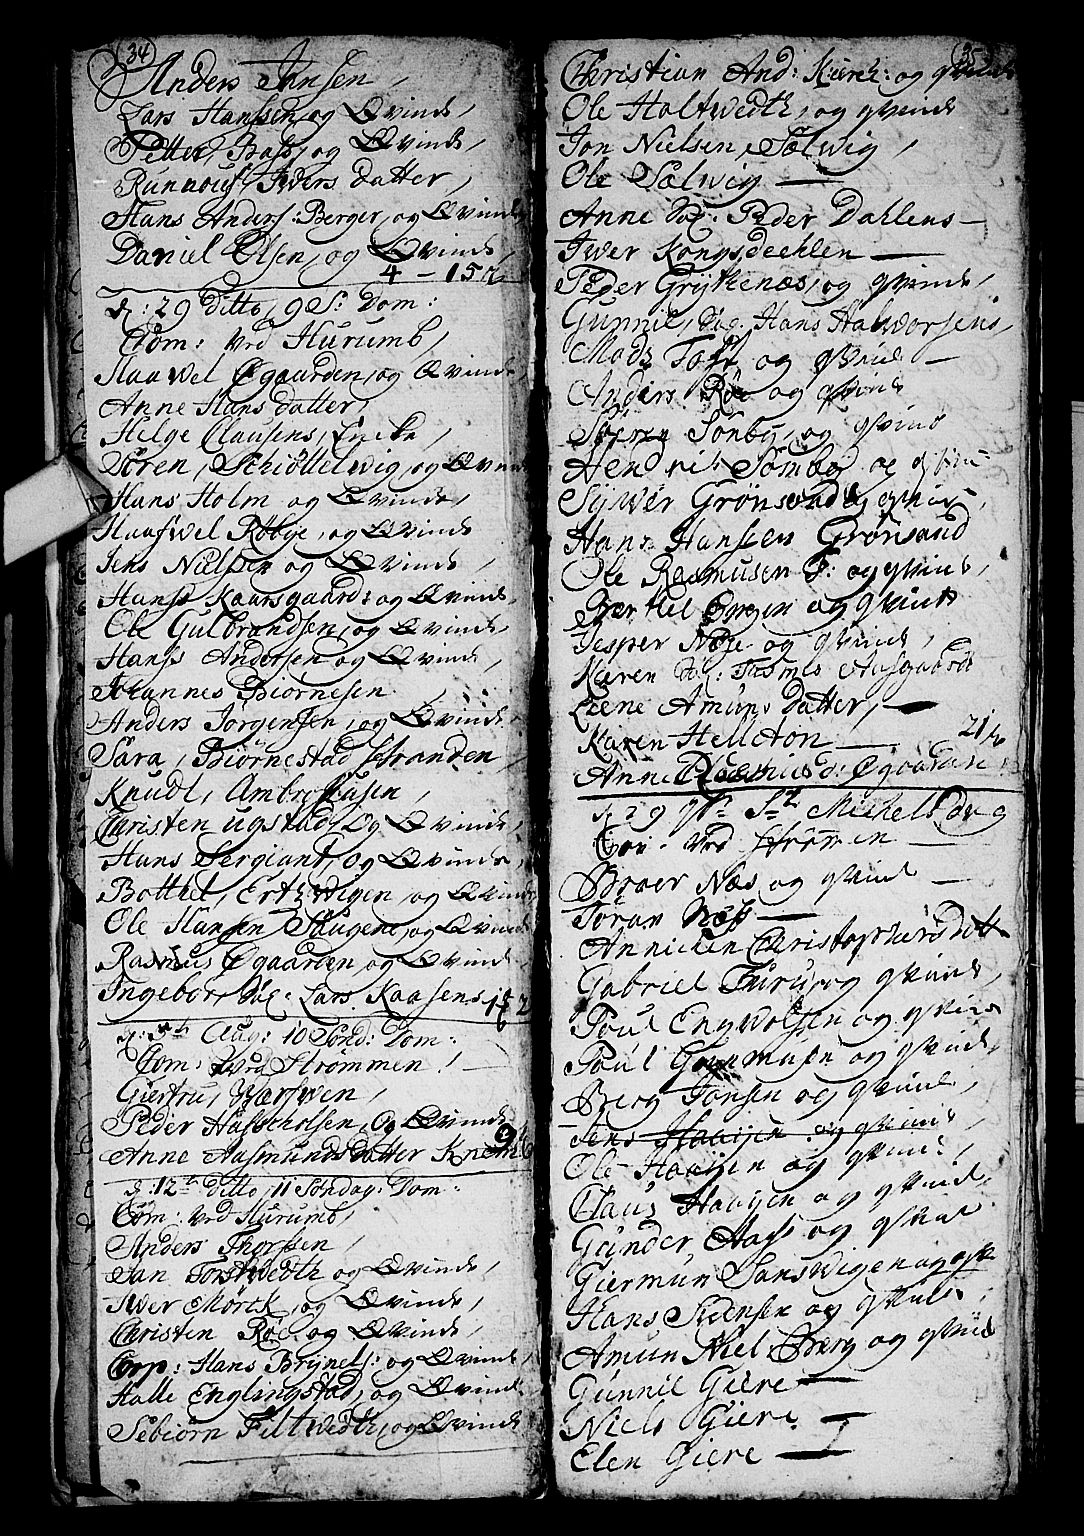 34
Anders Jansen,
Lars Hanssen, og Qvinde,
Petter, Bass, og Qvinde,
Runnouf, Ivers datter,
Hans Anders: Berger, og Qvinde,
Daniel Olsen, og Qvinde,
4 - 15
d: 29 Ditto, 9 S: Dom:
Com: ved Hurumb,
Haavel Øgaarden, og Qvinde
Anne Hans datter,
Helge Clausens, Encke,
Søren, Schiöttelwig, og Qvinde
Hans Holm og Qvinde,
Haafwel Røbye, og Qvinde
Jens Nielsen og Qvinde,
Hanss Kaarsgaard: og Qvinde,
Ole Gulbrandsen, og Qvinde,
Hanss Andersen og Qvinde,
Johannes Biørnesen,
Anders Jörgensen, og Qvinde
Sara, Biørnestad stranden,
Knudt, Ambrosiusen,
Christen ugstad, Og Qvinde,
Hans Sergiant, og Qvinde,
Bottel, Ertzwigen, og Qvinde
Ole Hansen Haugen, og Qvinde
Rasmus Øgaarden, og Qvinde,
Ingebor, Dog: Lars Kaasens
d: 5te Aug: 10 Sønd: Dom:
Com: ved Strømmen!
Giertru, Værswen,
Peder Hafscholsen, Og Qvinde,
Anne Aasmunds datter Knem
d: 12te Ditto, 11 Søndag: Dom:
Com: ved Hurumb,
Anders Thorssen,
Jan Torstwedtz og Qvinde,
Iwer Mörck, og Qvinde,
Christen Röe, og Qvinde,
Corp: Hans Brynels: og Qvinde,
Halle Englingstad, og Qvinde
Sebiørn Filtwedtz, og Qvinde
35
Christian And: Kierz: og qvinde
Ole Holtwedtz, og qvinde
Jon Nielsen, Sælwig,
Ole Sælwig —
Anne Dog: Peder Dahlens —
Iwer Kongsdeehlen —
Peder Grytenæs, og qvinde,
Gunnil, Dog: Hans Halvorsens,
Mads Tofte og qvinde —
Anders Røe og qvinde
Søren Sonby, og qvinde
Hendrik Sømby og qvinde
Sywer Grönsand og qvinde,
Hans Hansen Grønsand
Ole Rasmusen F: og qvinde,
Bertel Ørgen og qvinde
Jesper Næse og qvinde,
Karen Dog: Aasgaard
Lene Amuns datter, —
Karen Hellston —
21
Anne Øgaarden
d: 29 St Michels Dag
Com: ved Strømmen —
Broer Næs og qvinde —
Toran Næss —
Annicken Christophersdatter
Gabriel Furu, og qvinde,
Poul Engwolsen og qvinde
Poul Gunmusen og qvinde,
Berg Jonsen og qvinde,
Jens Haagen og qvinde
Ole Haagen og qvinde,
Claus Haagen og qvinde
Gunder Aass og qvinde
Giermun Sanswigen og qv
Hans Steensen og qvinde,
Amun Niels Berg og qvinde
Gunnil Giere —
Niels Giere —
Elen Giere —